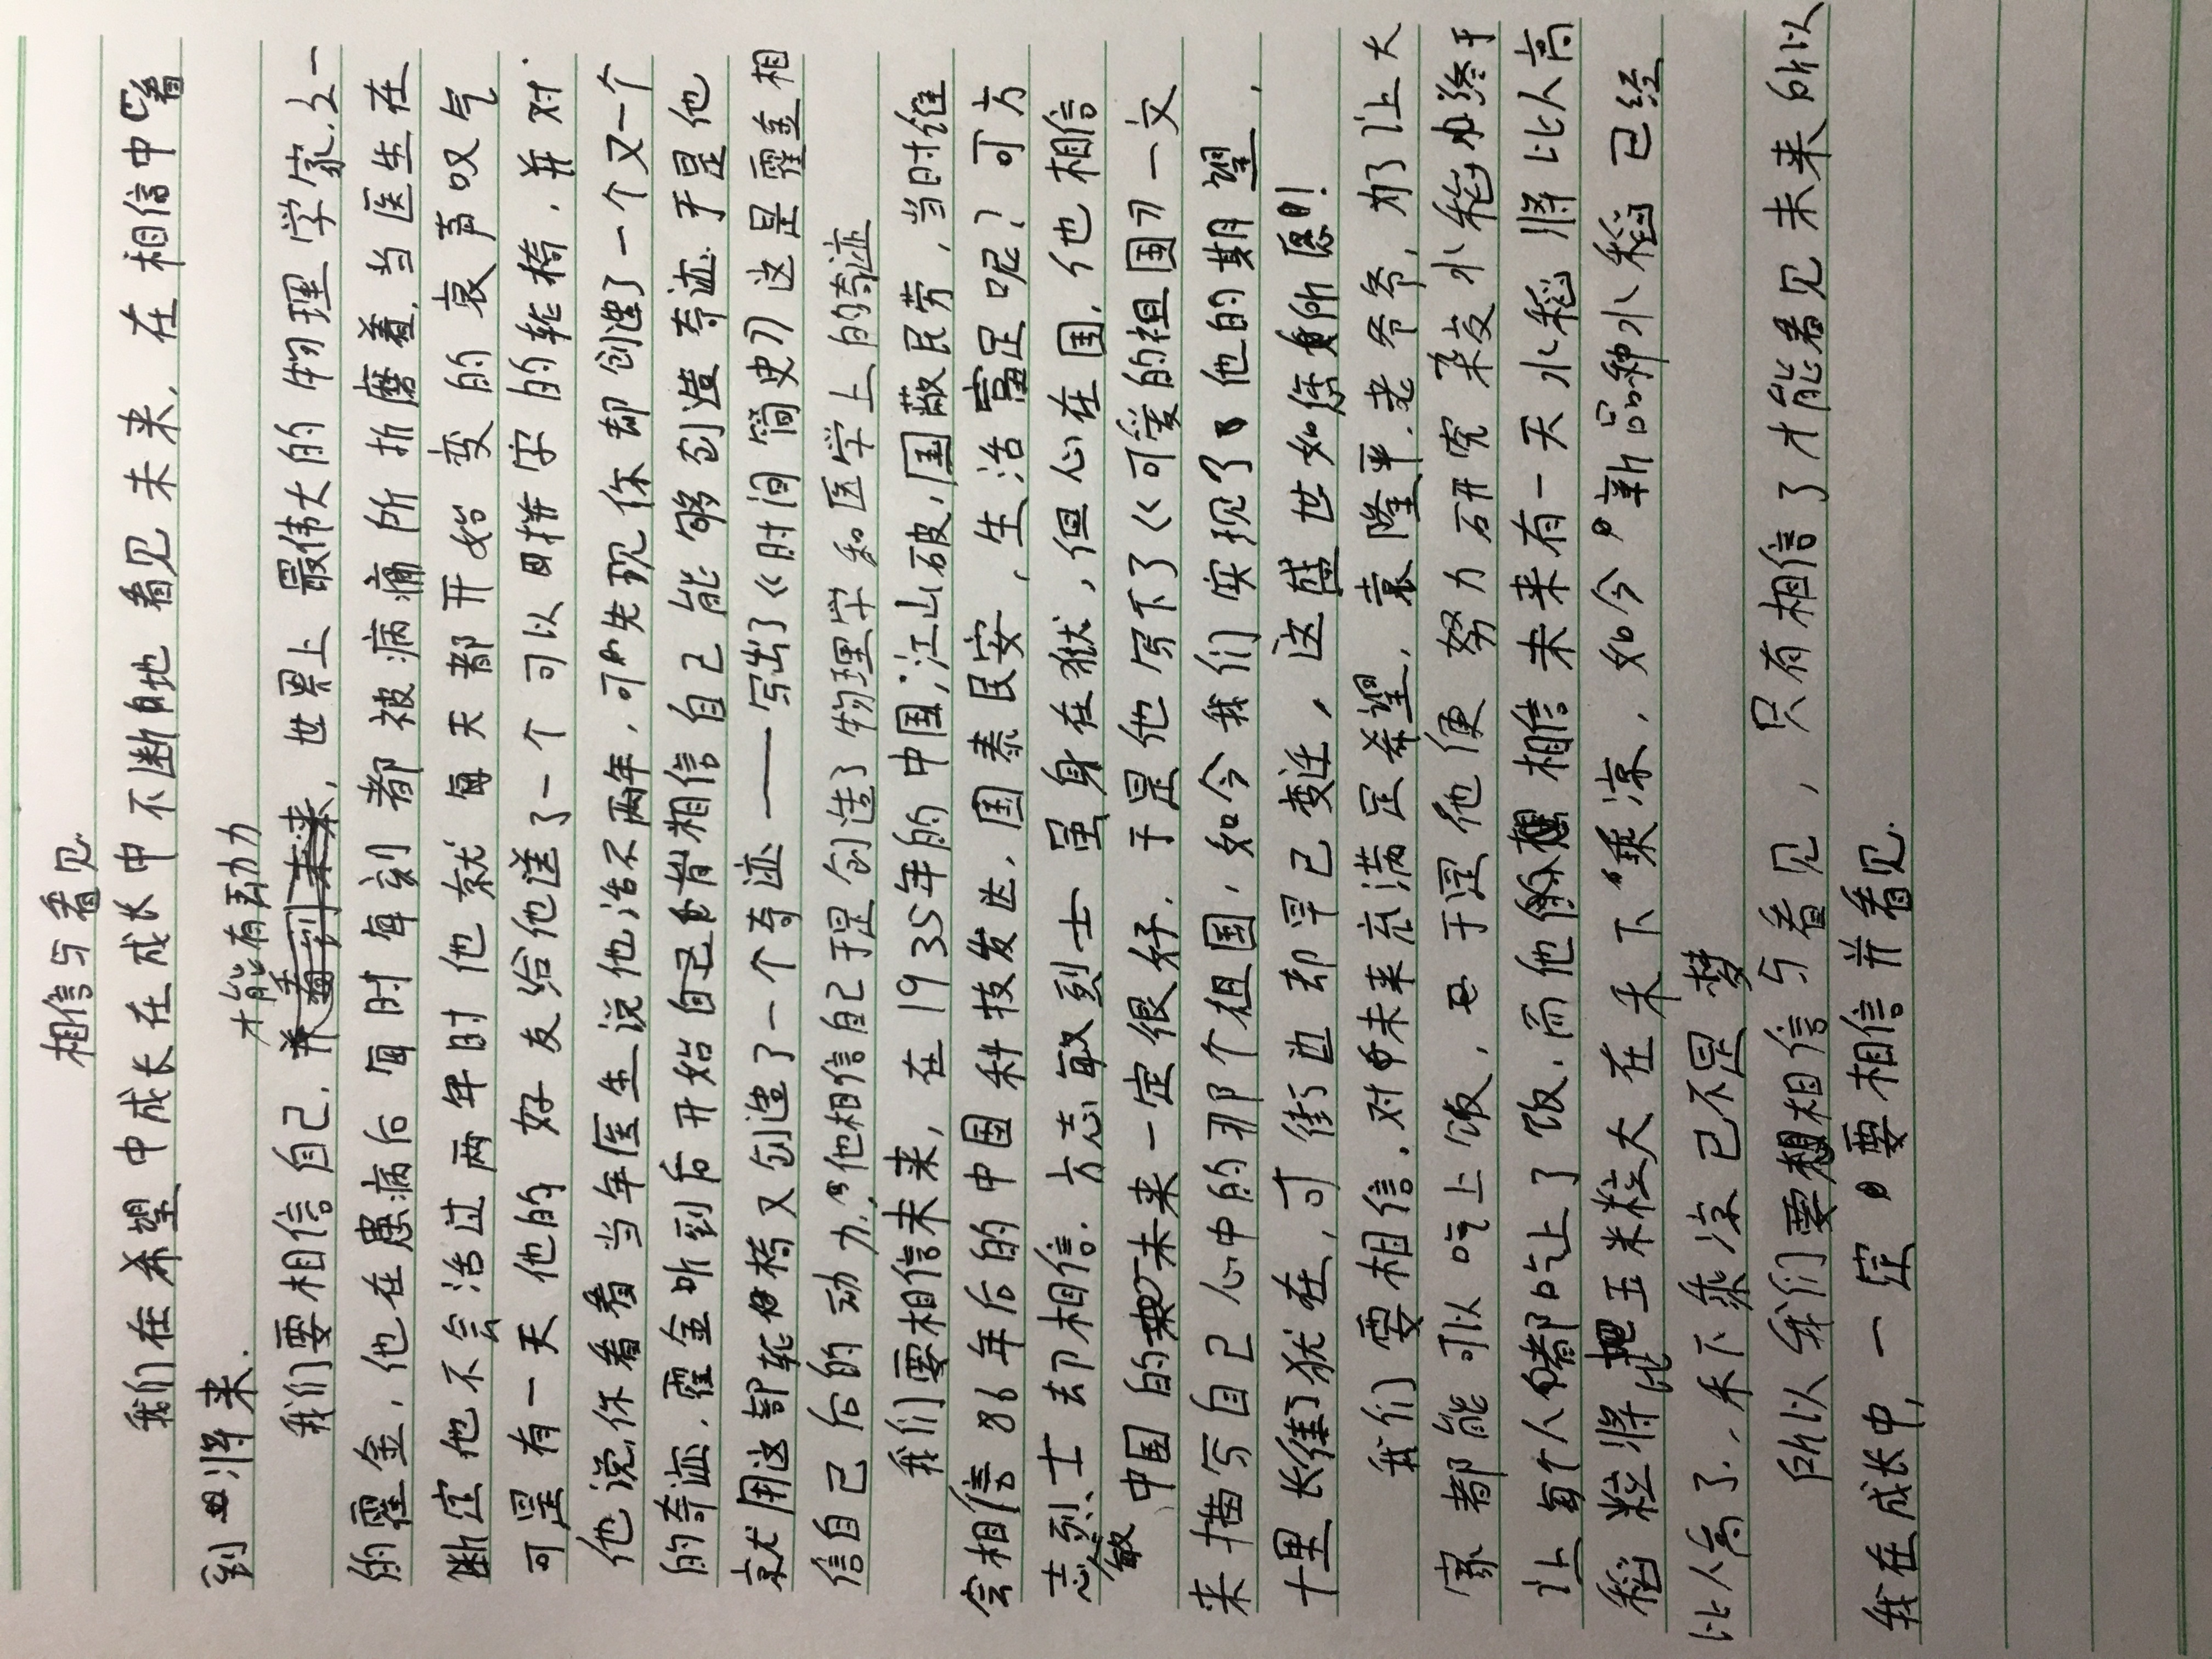 相信与看见
我们在希望中成长在成长中不断地看见未来，在相信中看
到将来．
才能有动力
我们要相信自己．世界上最伟大的物理学家之一
的霍金，他在患病后每时每刻都被病痛所折磨着．当医生在
断定他不会活过两年时他就每天都开始变的哀声叹气
可是有一天他的好友给他送了一个可以拼字的轮椅．并对
他说你看看当年医生说他活不两年，可先现你却创造了一个又一个
的奇迹．霍金听到后开始自己相信自己能够创造奇迹．于是他
就用这部轮椅又创造了一个奇迹——写出了《时间简史》这是霍金相
信自己后的动力．他相信自己于是创造了物理学和医学上的奇迹
我们要相信未来，在1935年的中国，江山破，国敝民劳，当时谁
会相信86年后的中国科技发达．国泰民安，生活富足呢？可方
志敏烈士却相信．方志敏烈士虽身在狱，但心在国，他也相信
中国的未来一定很好．于是他写下了《可爱的祖国》一文
来描写自己心中的那个祖国．如今我们实现了他的期望，
十里长街犹在，可街边却早已变迁，这盛世如您所愿！
我们要相信．对未来充满足希望．袁隆平．老爷爷，为了让大
家都能可以吃上饭，于是他便努力研究杂交水稻终于
让每个人都吃上了饭．而他相信未来有一天水稻将比人高
稻粒将比玉米粒大在禾下"乘凉．如今新品种水稻已经
比人高了．禾下乘凉已不是梦
所以我们要相信与看见，只有相信了才能看见未来所以
我在成长中，一定要相信并看见．